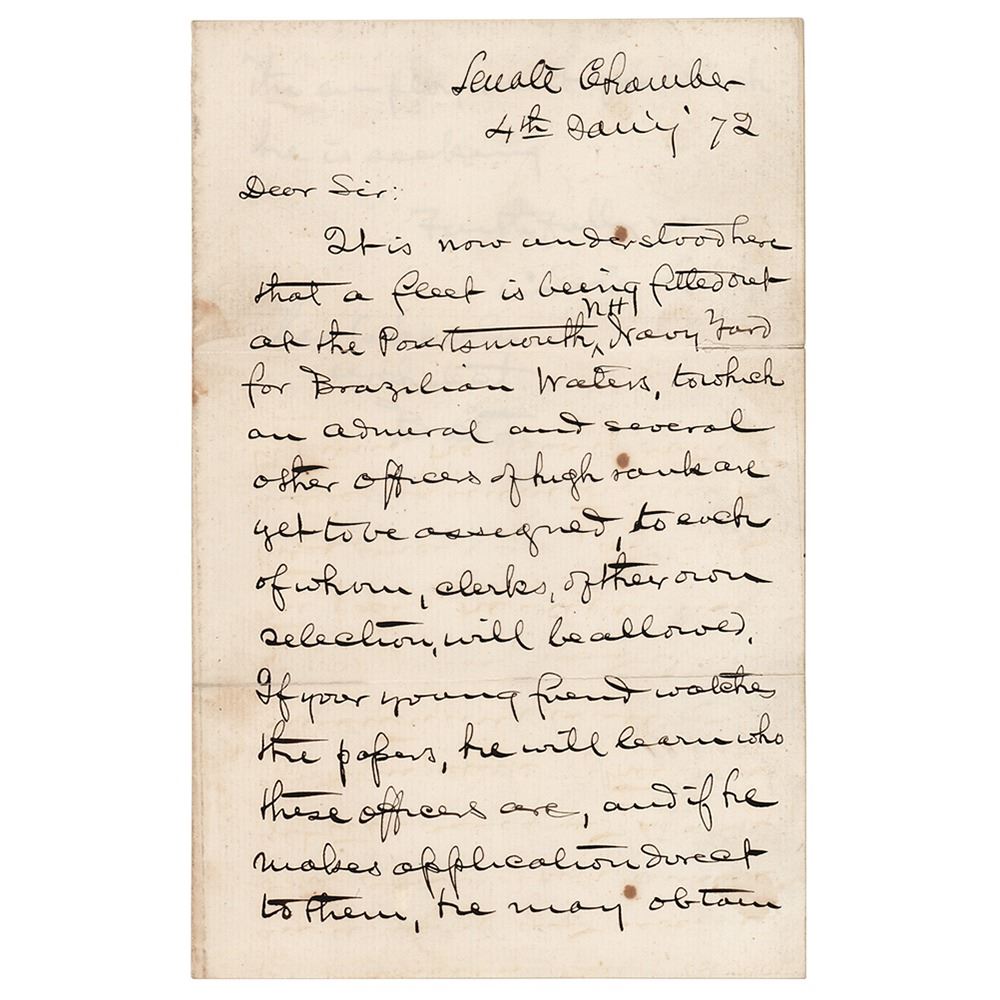 Senate Chamber
4th Jan'y '72
Dear Sir:
It is now understood here
that a fleet is being fitted out
at the Pourtsmouth, NH, Navy Yard
for Brazilian Waters, to which
an admiral and several
other officers of high rank are
yet to be assigned, to each
of whom, clerks, of their own
selection, will be allowed.
If your young friend watches
the papers, he will learn who
these officers are, and if he
makes application direct
to them, he may obtain